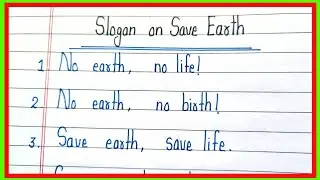 Slogan on Save Earth
1 No earth, no life!
2 No earth, no birth!
3. Save earth, save life.